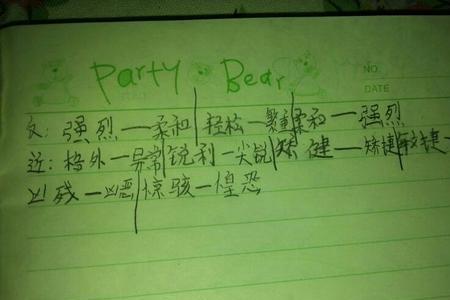 Party Bear
NO.
DATE
反：强烈—柔和 轻松—繁重 柔和—强烈
近：格外—异常 锐利—尖锐 矫健—矫捷 敏捷—
凶残—凶恶 惊骇—惶恐